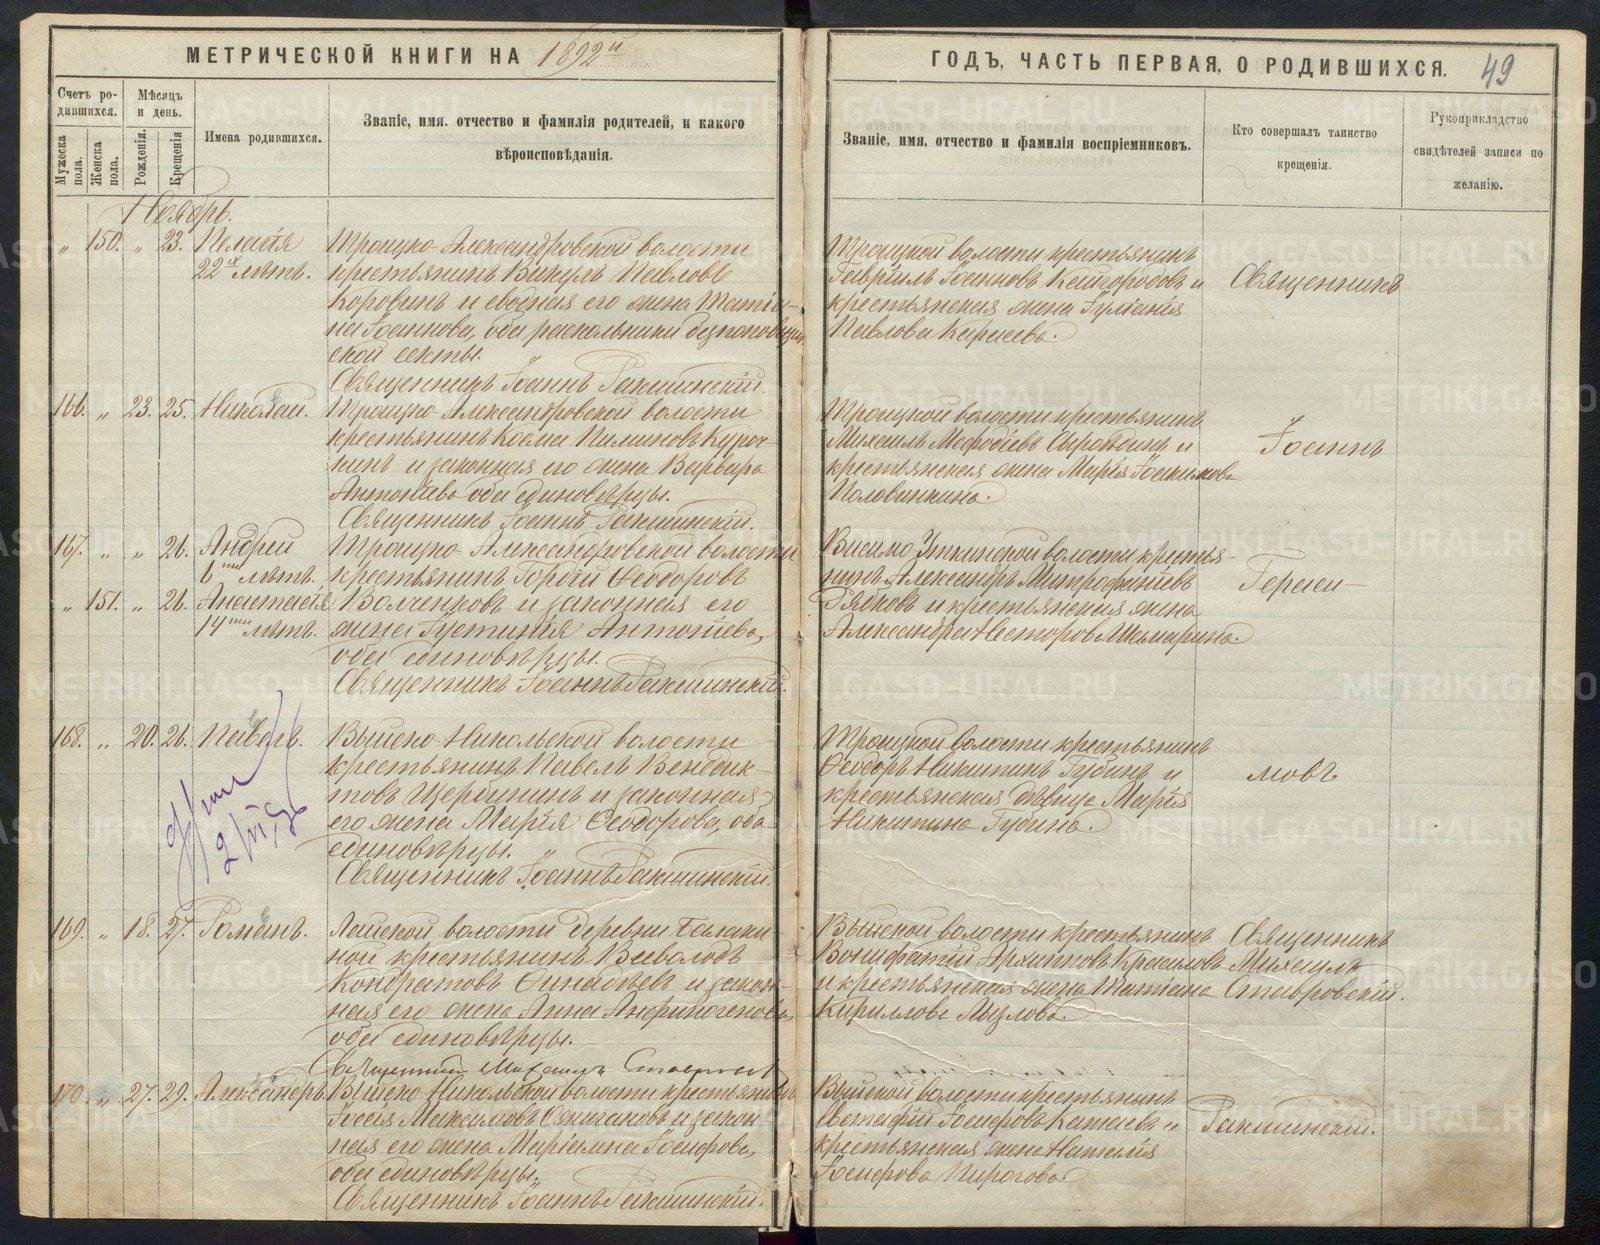 МЕТРИЧЕСКОЙ КНИГИ НА 1892й
ГОДЪ, ЧАСТЬ ПЕРВАЯ, О РОДИВШИХСЯ.
49
Счетъ ро-
дившихся.
Мѣсяцъ
и день.
Мужеска
пола.
Женска
пола.
Рожденія.
Крещенія
Имена родившихся.
Званіе, имя, отчество и фамилія родителей, и какого
вѣроисповѣданія.
Званіе, имя, отчество и фамилія воспріемниковъ.
Кто совершалъ таинство
крещенія.
Рукоприкладство
свидѣтелей записи по
желанію.
Ноябрь.
" 150. " 23. Пелагія
22хъ лѣтъ.
Троицко-Александровской волости
крестьянинъ Викулъ Павловъ
Коровинъ и сводная его жена Татiа-
на Іоаннова, оба раскольники безпоповщин-
ской секты.
Священникъ Іоаннъ Ракшинскій.
Троицкой волости крестьянинъ
Гавріилъ Іоанновъ Кайгородовъ и
крестьянская жена Іуліанія
Павлова Караева.
Священникъ
166. " 23. 25. Николай.
Троицко-Александровской волости
крестьянинъ Косма Филиповъ Куроч-
кинъ и законная его жена Варвара
Антоніева оба единовѣрцы.
Священникъ Іоаннъ Ракшинскій.
Троицкой волости крестьянинъ
Михаилъ Мефодіевъ и
крестьянская жена Марія Іоакимова
Половинкина.
Іоаннъ
167. " " 26. Андрей
6ти лѣтъ.
" 151. " 26. Анастасія
14ти лѣтъ.
Троицко-Александровской волости
крестьянинъ Гордій Ѳеодоровъ
Волченковъ и законная его
жена Іустинія Антоніева,
оба единовѣрцы.
Священникъ Іоаннъ Ракшинскій.
Висимо Уткинской волости крестья-
нинъ Александръ Митрофаніевъ
Рябковъ и крестьянская жена
Александра Несторова Шамарина.
Гераси-
168. " 20. 26. Павелъ.
Выйско-Никольской волости
крестьянинъ Павелъ Венедик-
товъ и законная
его жена Марія Ѳеодорова, оба
единовѣрцы.
Священникъ Іоаннъ Ракшинскій.
Троицкой волости крестьянинъ
Ѳеодоръ Никитинъ Губинъ и
крестьянская дѣвица Марія
Никитина Губина.
мовъ
169. " 18. 27. Романъ.
Лайской волости деревни Балаки-
ной крестьянинъ Всеволодъ
Кондратовъ и закон-
ная его жена Анна Анфиногенова,
оба единовѣрцы.
Священникъ Михаилъ Ставровскій
Выйской волости крестьянинъ
Вонифатій Архиповъ Красиловъ
и крестьянская жена Татiана
Кириллова Мызлова.
Священникъ
Михаилъ
Ставровскій.
170. " 27. 29. Александръ.
Выйско-Никольской волости крестьянинъ
Максимовъ и закон-
ная его жена Маріамна Іосифова,
оба единовѣрцы.
Священникъ Іоаннъ Ракшинскій.
Выйской волости крестьянинъ
Евстафій Іосифовъ Катаевъ и
крестьянская жена Наталія
Іосифова Пирогова
Ракшинскій.
METRIKI.GASO-URAL.RU